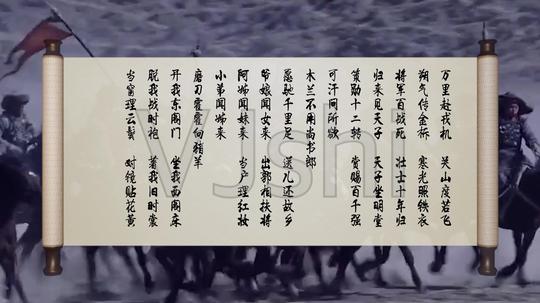 万里赴戎机 关山度若飞
朔气传金柝 寒光照铁衣
将军百战死 壮士十年归
归来见天子 天子坐明堂
策勋十二转 赏赐百千强
可汗问所欲
木兰不用尚书郎
愿驰千里足 送儿还故乡
爷娘闻女来 出郭相扶将
阿姊闻妹来 当户理红妆
小弟闻姊来
磨刀霍霍向猪羊
开我东阁门 坐我西阁床
脱我战时袍 着我旧时裳
当窗理云鬓 对镜贴花黄
VJshi